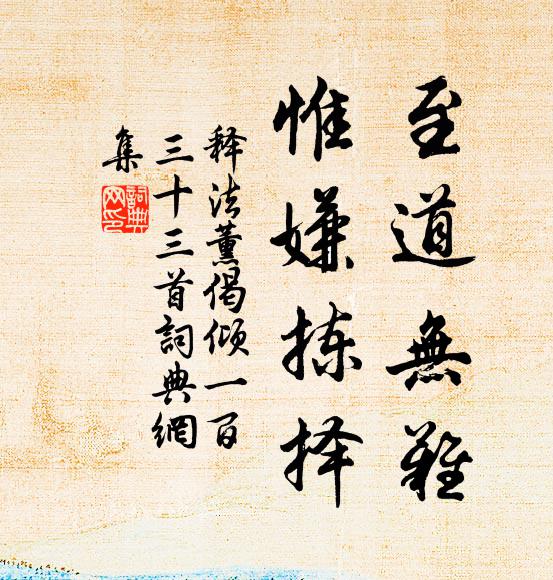 至道無難
惟嫌揀择
释法薰偈倾一百
三十三首詞典網
集
詞典
网印